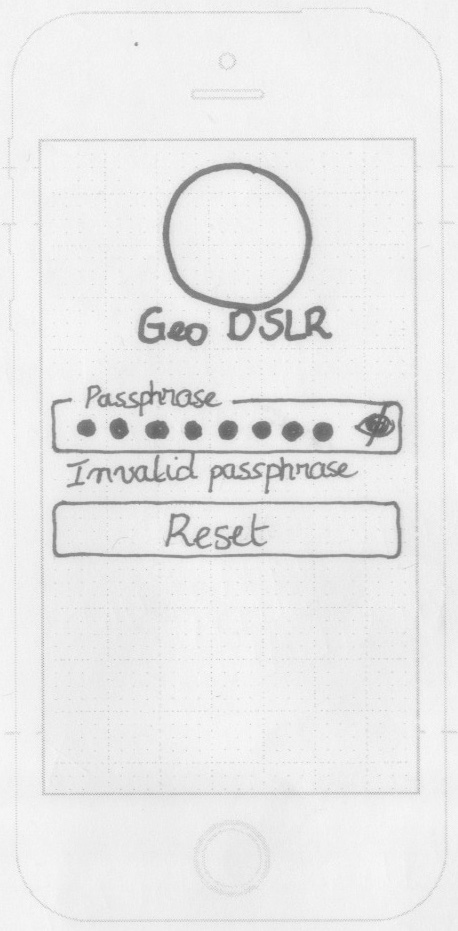 Geo DSLR
Passphrase
Invalid passphrase
Reset